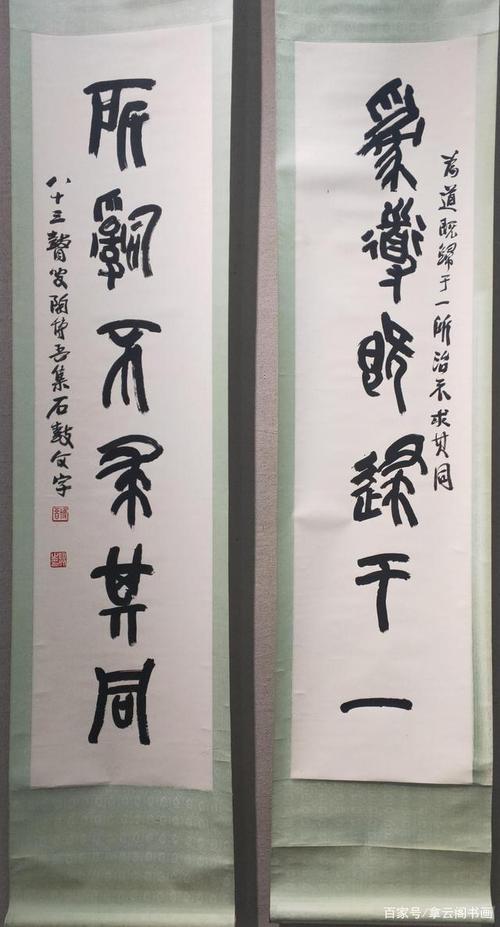 為道既歸于一所治不求其同
為道既歸于一
所治不求其同
八十三瞽叟陶博吾集石鼓文字
百家号/拿云阁书画